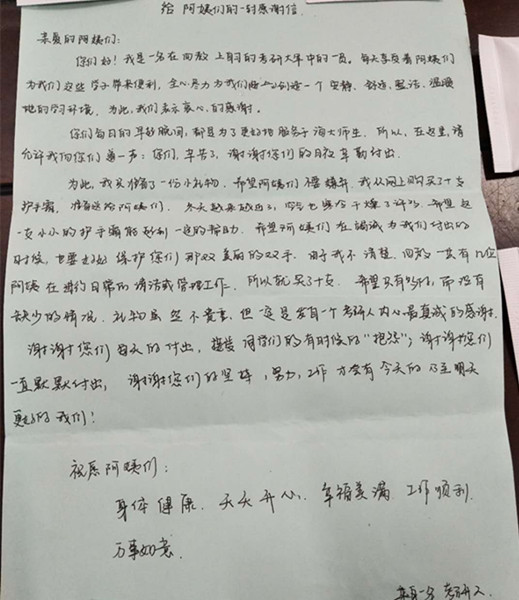 给阿姨们的一封感谢信
亲爱的阿姨们：
你们好！我是一名在回教上自习的考研大军中的一员。每天享受着阿姨们
为我们这些学子带来便利，全心尽力为我们创造一个安静、舒适、整洁、温暖
的学习环境，为此，我们表示衷心的感谢。
你们每日的早起晚间，都是为了更好地服务于海大师生。所以，在这里，请
允许我向你们道一声：你们，辛苦了，谢谢您们的日夜辛勤付出。
为此，我只准备了一份小礼物，希望阿姨们不要嫌弃。我从网上购买了十支
护手霜，准备送给阿姨们。冬天越来越近了，空气也跟着干燥了许多。希望这
一支小小的护手霜能起到一定的帮助。希望阿姨们在竭诚为我们付出的
时候，也要记得保护你们那双美丽的双手。由于我不清楚，回教一共有几位
阿姨在进行日常的清洁或管理工作，所以就买了十支。希望只有多的，而没有
缺少的情况。礼物虽然不贵重，但这是发自一个考研人内心最真诚的感谢。
谢谢你们每天的付出，接受同学们的有时候的“抱怨”；谢谢您们
一直默默付出，谢谢您们的坚持，努力，工作才会有今天的乃至明天
更好的我们！
祝愿阿姨们：
身体健康、天天开心、幸福美满、工作顺利、
万事如意。
考研人